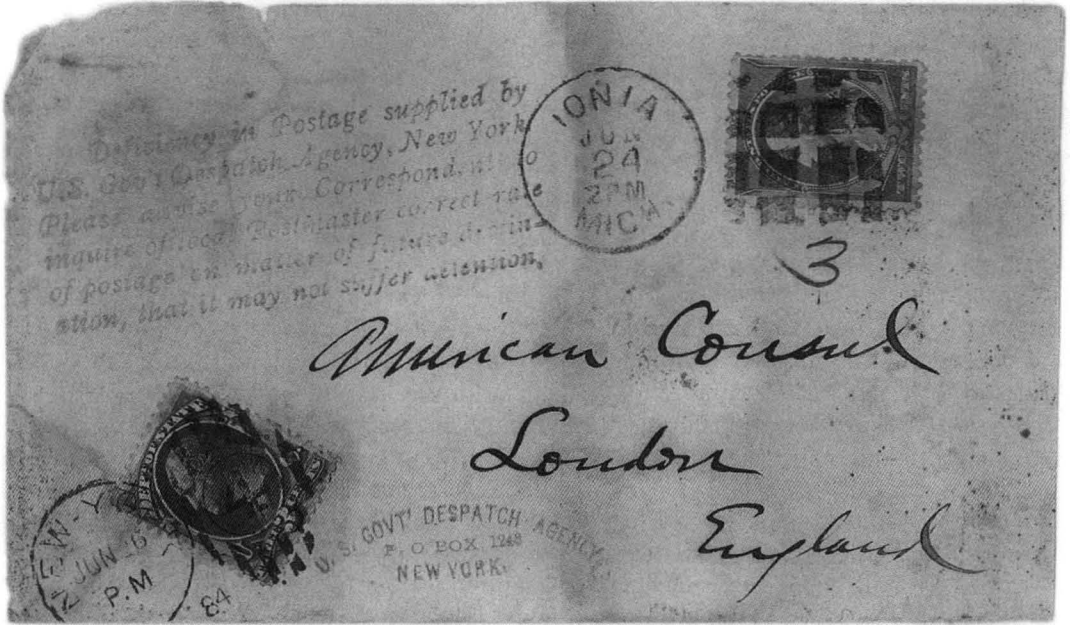 Deficiency in Postage supplied by
U.S. Gov't Despatch Agency, New York.
Please advise your Correspondent to
inquire of local Postmaster correct rate
of postage on matter of future destin-
ation, that it may not suffer detention.
IONIA
JUN
24
2PM
MICH.
3
American Consul
London
England
NEW-Y
JUN 26
P.M
84
U.S. GOVT' DESPATCH AGENCY
P. O BOX 1248
NEW YORK.